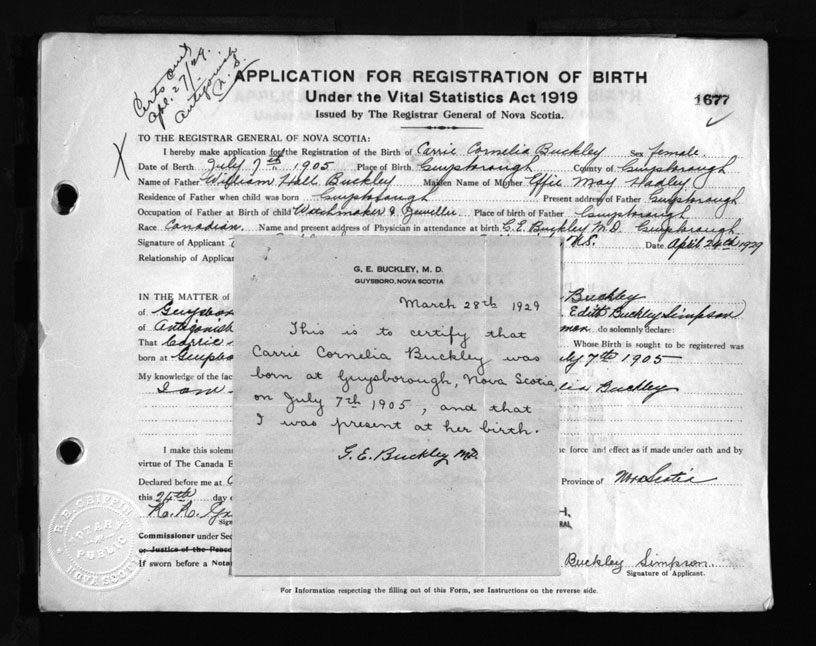 Certs out
Apl. 27/29.
Antigonish
N.S.
APPLICATION FOR REGISTRATION OF BIRTH
Under the Vital Statistics Act 1919
Issued by The Registrar General of Nova Scotia.
1677
TO THE REGISTRAR GENERAL OF NOVA SCOTIA:
I hereby make application for the Registration of the Birth of Carrie Cornelia Buckley Sex female.
Date of Birth July 7th 1905 Place of Birth Guysborough County of Guysborough
Name of Father William Hall Buckley Maiden Name of Mother Effie May Hadley
Residence of Father when child was born Guysborough Present address of Father Guysborough
Occupation of Father at Birth of child Watchmaker & Jeweller Place of birth of Father Guysborough
Race Canadian Name and present address of Physician in attendance at birth G.E. Buckley M.D. Guysborough
Signature of Applicant N.S. Date April 24th 1929
Relationship of Applican
G. E. BUCKLEY, M. D.
GUYSBORO, NOVA SCOTIA
March 28th 1929
This is to certify that
Carrie Cornelia Buckley was
born at Guysborough, Nova Scotia,
on July 7th 1905, and that
I was present at her birth.
G. E. Buckley M.D.
IN THE MATTER of Buckley
of Guysbor Edith Buckley Simpson
of Antigonish do solemnly declare:
That Carrie Whose Birth is sought to be registered was
born at Guysbo ly 7th 1905
My knowledge of the fac lia Buckley
I am
I make this solem he force and effect as if made under oath and by
virtue of The Canada E
Declared before me at Province of Nova Scotia
this 24th day o
Sign
Commissioner under Sec
or Justice of the Peace
If sworn before a Nota Buckley Simpson
Signature of Applicant.
For Information respecting the filling out of this Form, see Instructions on the reverse side.
R. R. GRIFFIN
NOTARY
PUBLIC
NOVA SCOTIA